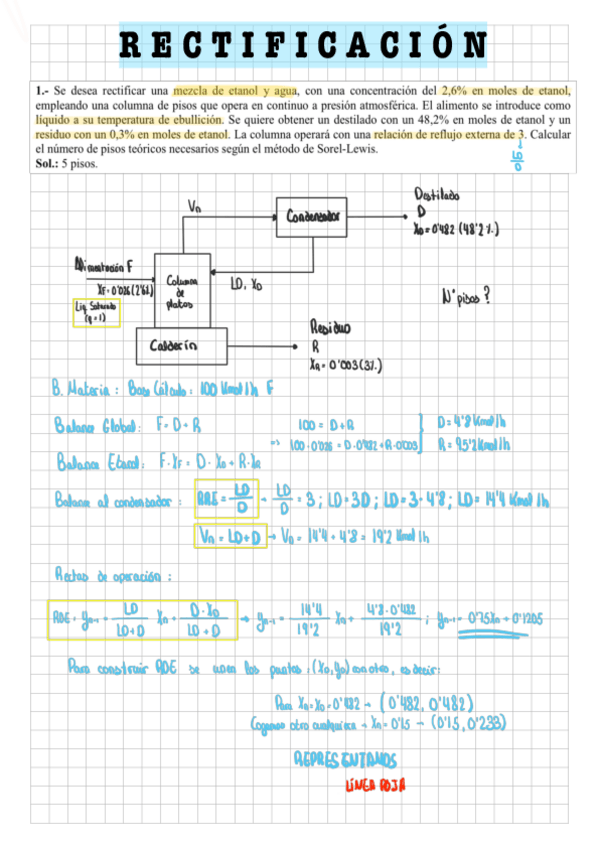 RECTIFICACIÓN
1.- Se desea rectificar una mezcla de etanol y agua, con una concentración del 2,6% en moles de etanol,
empleando una columna de pisos que opera en continuo a presión atmosférica. El alimento se introduce como
líquido a su temperatura de ebullición. Se quiere obtener un destilado con un 48,2% en moles de etanol y un
residuo con un 0,3% en moles de etanol. La columna operará con una relación de reflujo externa de 3. Calcular
el número de pisos teóricos necesarios según el método de Sorel-Lewis.
Sol.: 5 pisos.
LD/D
Vn
Condensador
Destilado
D
XD = 0'482 (48'2%)
Alimentación F
XF = 0'026 (2'6%)
Liq. Saturado
(q = 1)
Columna
de
platos
LD, XD
Nº pisos?
Calderín
Residuo
R
XR = 0'003 (3%)
B. Materia: Base Cálculo: 100 Kmol/h F
Balance Global: F = D + R
100 = D + R
D = 4'8 Kmol/h
=> 100·0'026 = D·0'482 + R·0'003
R = 95'2 Kmol/h
Balance Etanol: F·XF = D·XD + R·XR
Balance al condensador: RRE = LD/D → LD/D = 3; LD = 3D; LD = 3·4'8; LD = 14'4 Kmol/h
Vn = LD + D → Vn = 14'4 + 4'8 = 19'2 Kmol/h
Rectas de operación:
ROE: yn-1 = LD/(LD+D) Xn + D·XD/(LD+D) → yn-1 = 14'4/19'2 Xn + 4'8·0'482/19'2; yn-1 = 0'75Xn + 0'1205
Para construir ROE se unen los puntos: (XD, yD) con otro, es decir:
Para Xn = XD = 0'482 → (0'482, 0'482)
Cogemos otro cualquiera → Xn = 0'15 → (0'15, 0'233)
REPRESENTAMOS
LÍNEA ROJA